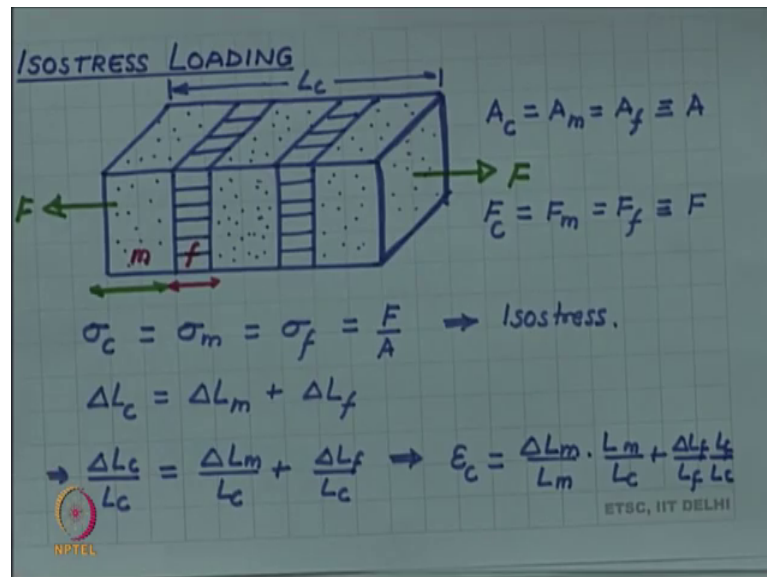 ISOSTRESS LOADING
Lc
A_c = A_m = A_f ≡ A
F
F
F_c = F_m = F_f ≡ F
m f
σ_c = σ_m = σ_f = F/A → Isostress.
ΔL_c = ΔL_m + ΔL_f
→ ΔL_c/L_c = ΔL_m/L_c + ΔL_f/L_c → ε_c = ΔL_m/L_m · L_m/L_c + ΔL_f/L_f L_f/L_c
ETSC, IIT DELHI
NPTEL